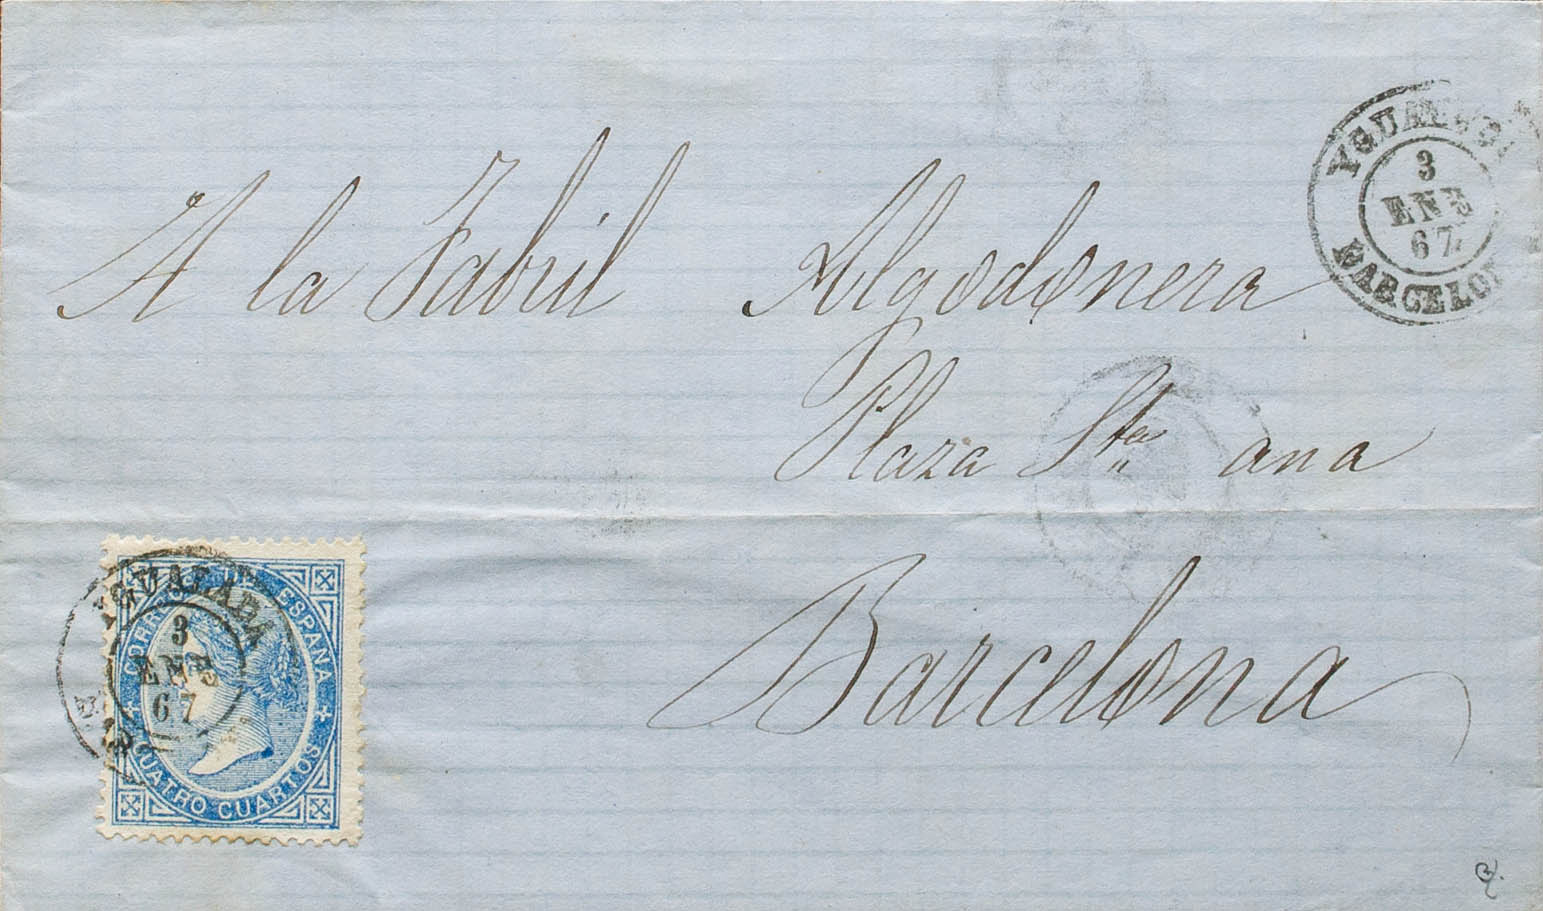 A la Fabril Algodonera
Plaza Sta ana
Barcelona
YGUALADA
3
ENE
67
BARCELON
CORREOS DE ESPAÑA
YGUALADA
3
ENE
67
CUATRO CUARTOS